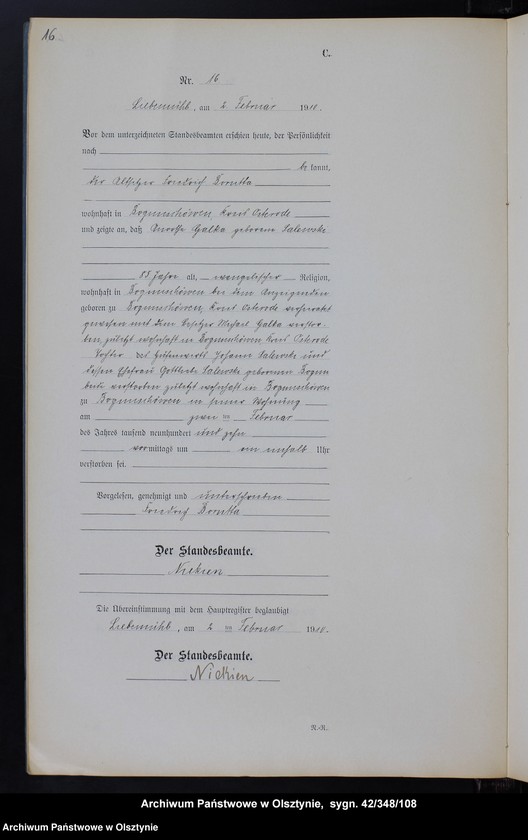 16
C.
Nr. 16
Liebemühl, am 2 Februar 1910.
Vor dem unterzeichneten Standesbeamten erschien heute, der Persönlichkeit
nach
be kannt,
der Altsitzer Friedrich
wohnhaft in Bogunschöwen, Kreis Osterode
und zeigte an, daß Galka geborene Salewske
88 Jahre alt, evangelischer Religion,
wohnhaft in Bogunschöwen bei dem Anzeigenden
geboren zu Bogunschöwen, Kreis Osterode verheiratet
gewesen mit dem Besitzer Michael Galka verstor-
ben, zuletzt wohnhaft in Bogunschöwen, Kreis Osterode
Tochter des Johann Salewske und
dessen Ehefrau Gottliebe Salewske geborenen
beide verstorben zuletzt wohnhaft in Bogunschöwen
zu Bogunschöwen in seiner Wohnung
am zwei ten Februar
des Jahres tausend neunhundert und zehn
vormittags um ein einhalb Uhr
verstorben sei.
Vorgelesen, genehmigt und unterschrieben
Friedrich
Der Standesbeamte.
Nickien
Die Übereinstimmung mit dem Hauptregister beglaubigt
Liebemühl, am 2 ten Februar 1910.
Der Standesbeamte.
Nickien
N.-R.
Archiwum Państwowe w Olsztynie, sygn. 42/348/108
Archiwum Państwowe w Olsztynie